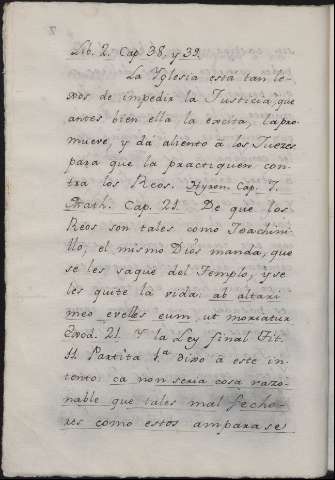 Lib. 2. Cap. 38. y 39.
La Yglesia està tan le-
xos de impedir la Justicia, que
antes bien ella la excita, la pro-
mueve, y da aliento à los Juezes
para que la practiquen con-
tra los Reos. Hyrem. Cap. 7.
Math. Cap. 21. De que los
Reos son tales como Joachini-
llo; el mismo Dios manda, que
se les saque del Templo, y se
les quite la vida: ab altari
meo evelles eum, ut moriatur
Exod. 21. Y la Ley final Tit.
11 Partita 1ª dixo à este in-
tento: ca non seria cosa razo-
nable que tales mal fecho-
res como estos amparase